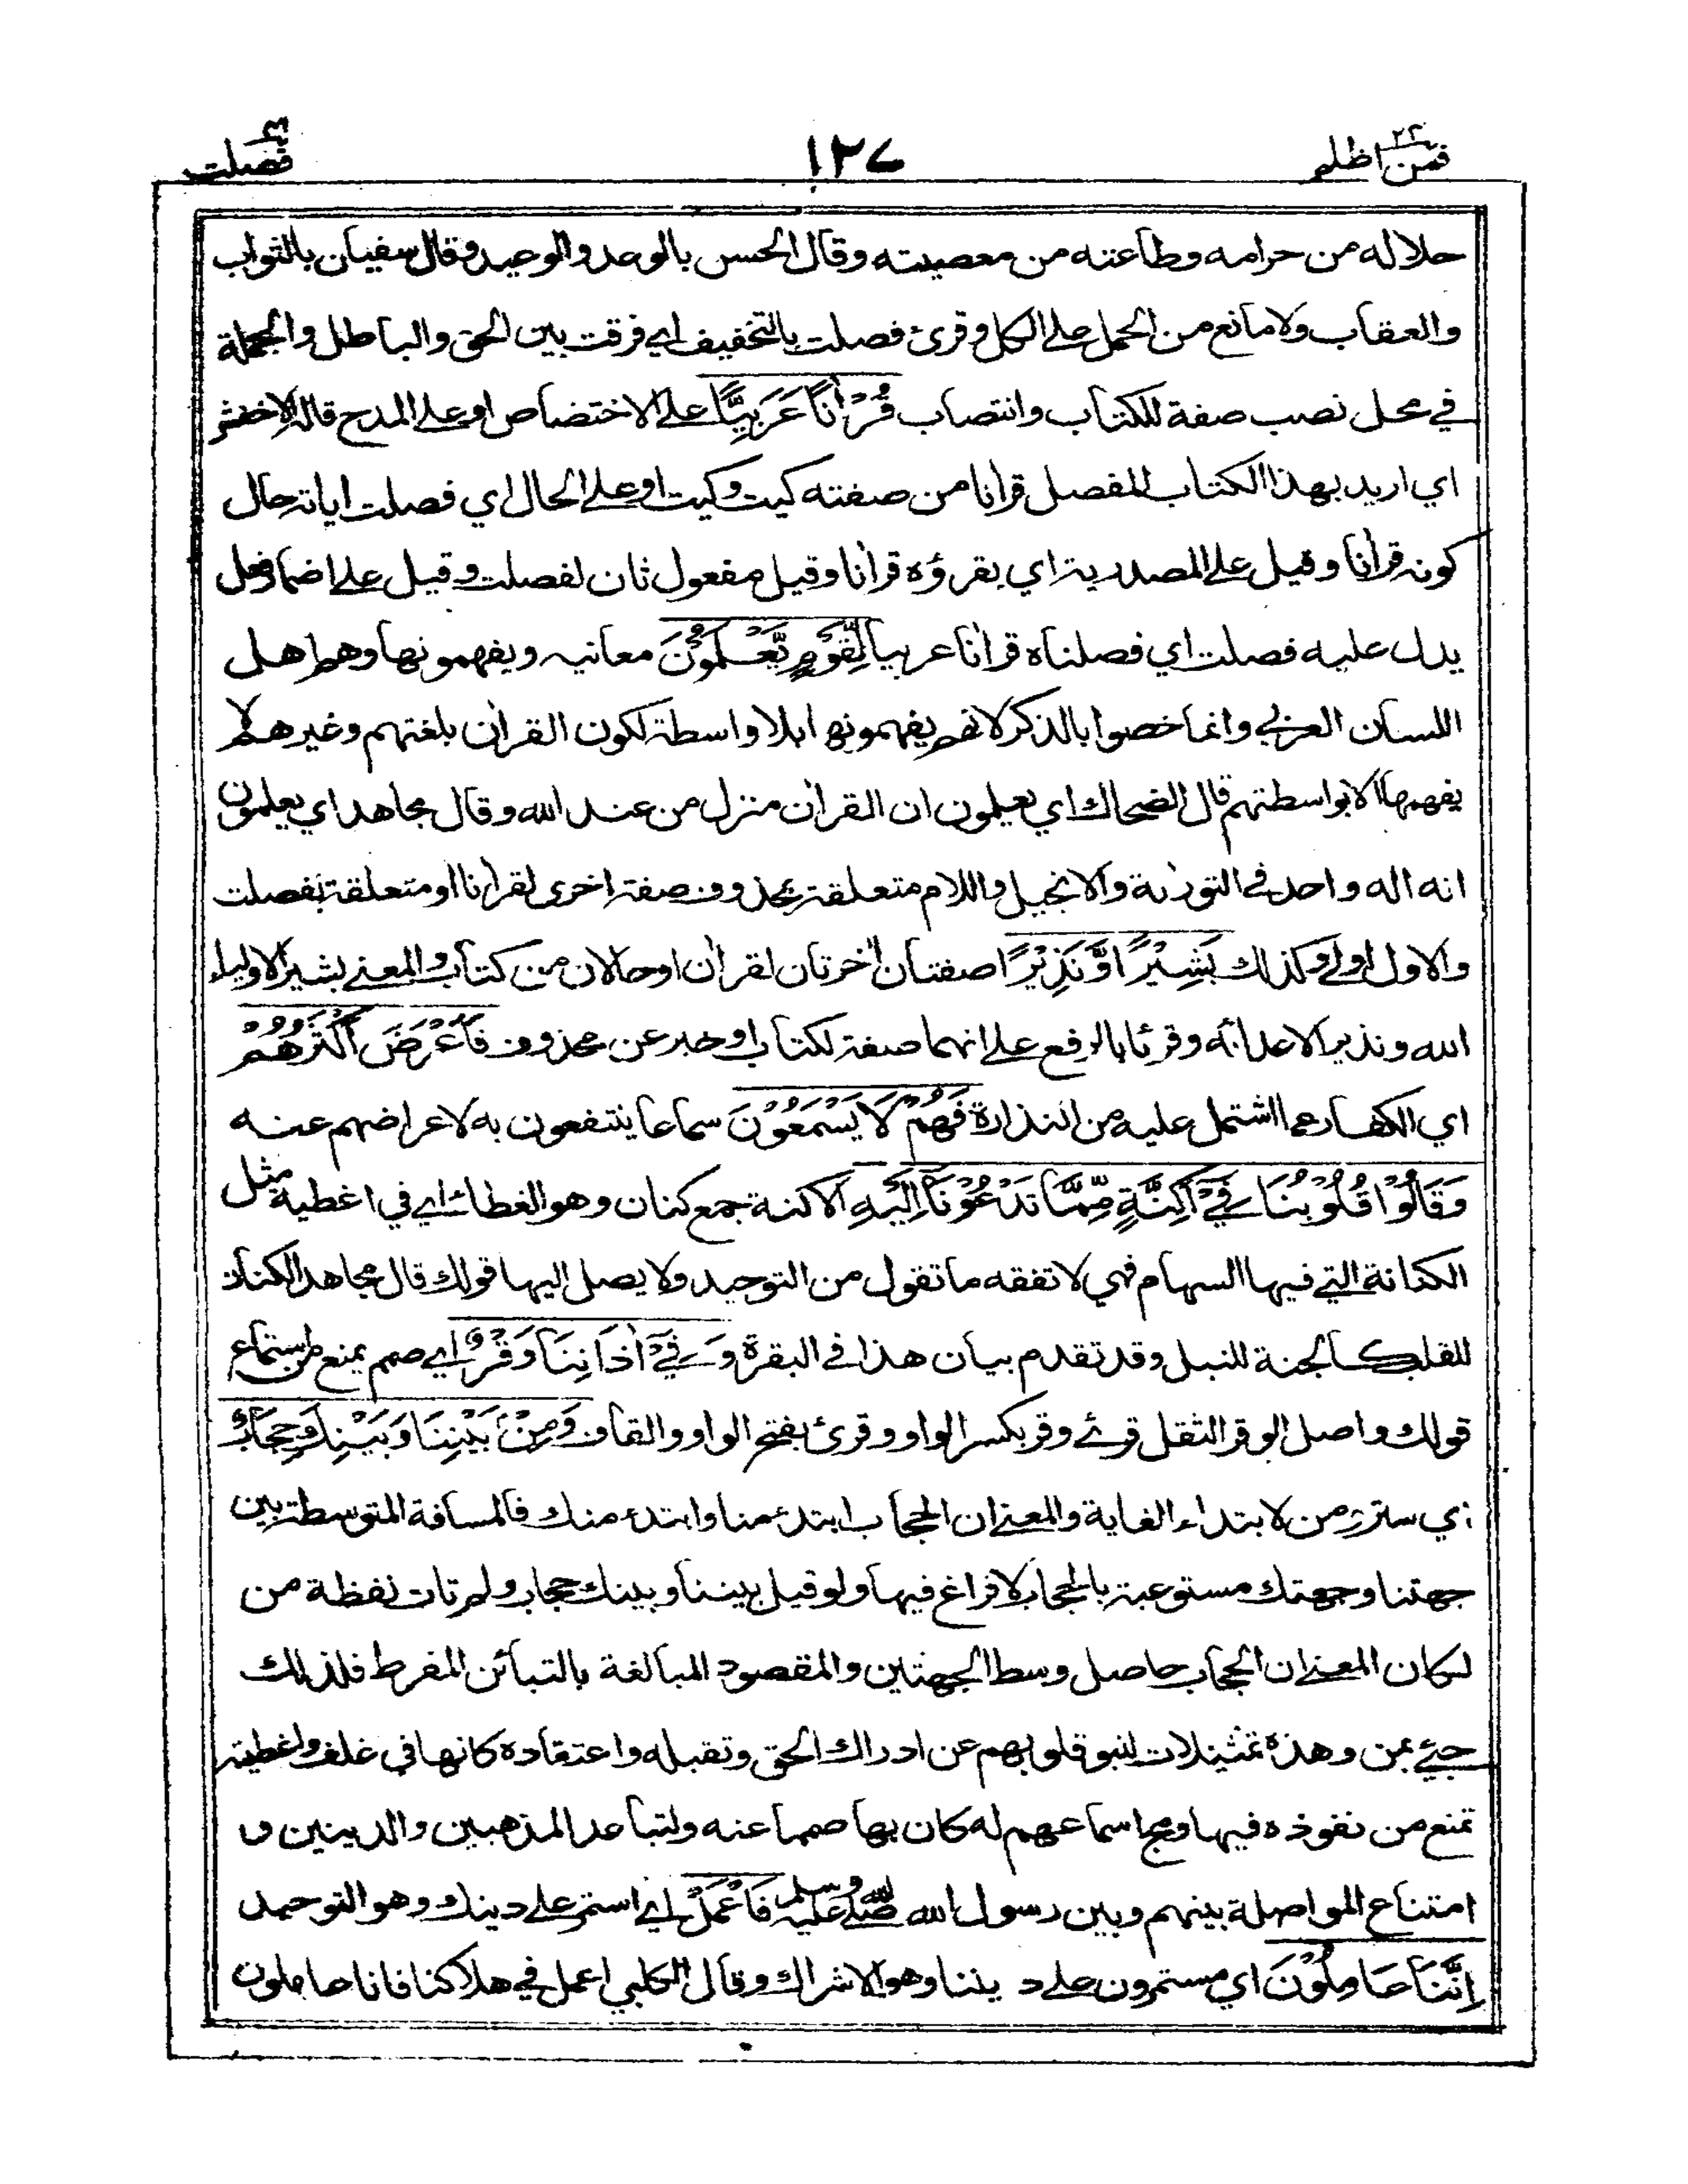 فمن اظلم ٢٤
١٢٧
فصلت
حلاله من حرامه وطاعته من معصيته وقال الحسن بالوعد والوعيد وقال سفيان بالثواب
والعقاب ولا مانع من الحمل على الكل وقرئ فصلت بالتخفيف اي فرقت بين الحق والباطل والجملة
في محل نصب صفة للكتاب وانتصاب قُرْاٰنًا عَرَبِيًّا على الاختصاص او على المدح قاله الاخفش
اي اريد بهذا الكتاب المفصل قرانا من صفته كيت وكيت او على الحال اي فصلت اياته حال
كونه قرانا وقيل على المصدرية اي يقرؤه قرانا وقيل مفعول ثان لفصلت وقيل على اضمار فعل
يدل عليه فصلت اي فصلناه قرانا عربيا لِّقَوْمٍ يَّعْلَمُوْنَ معانيه ويفهمونها وهم اهل
اللسان العربي وانما خصوا بالذكر لانهم يفهمونها بلا واسطة لكون القران بلغتهم وغيرهم لا
يفهمها الا بواسطتهم قال الضحاك اي يعلمون ان القران منزل من عند الله وقال مجاهد اي يعلمون
انه اله واحد في التورىة والانجيل واللام متعلقة بمحذوف صفة اخرى لقرانا او متعلقة بفصلت
والاول اولى وكذلك بَشِيْرًا وَّنَذِيْرًا صفتان اخرتان لقران او حالان من كتاب والمعنى بشيرا لاولياء
الله ونذيرا لاعدائه وقرئا بالرفع على انهما صفة لكتاب او خبر عن محذوف فَاَعْرَضَ اَكْثَرُهُمْ
اي الكفار عما اشتمل عليه من النذارة فَهُمْ لَا يَسْمَعُوْنَ سماعا ينتفعون به لاعراضهم عنه
وَقَالُوْا قُلُوْبُنَا فِيْٓ اَكِنَّةٍ مِّمَّا تَدْعُوْنَآ اِلَيْهِ الاكنة جمع كنان وهو الغطاء اي في اغطية مثل
الكنانة التي فيها السهام فهي لا تفقه ما تقول من التوحيد ولا يصل اليها قولك قال مجاهد الكنان
للقلب كالجنة للنبل وقد تقدم بيان هذا في البقرة وَفِيْٓ اٰذَانِنَا وَقْرٌ اي صمم يمنع من استماع
قولك واصل الوقر الثقل قرئ وقر بكسر الواو وقرئ بفتح الواو والقاف وَمِنْۢ بَيْنِنَا وَبَيْنِكَ حِجَابٌ
اي ستر ومن لابتداء الغاية والمعنى ان الحجاب ابتدء منا وابتدء منك فالمسافة المتوسطة بين
جهتنا وجهتك مستوعبة بالحجاب لا فراغ فيها ولو قيل بيننا وبينك حجاب ولم تات لفظة من
لكان المعنى ان الحجاب حاصل وسط الجهتين والمقصود المبالغة بالتبائن المفرط فلذلك
جيئ بمن وهذه تمثيلات لنبو قلوبهم عن ادراك الحق وتقبله واعتقاده كانها في غلف واغطية
تمنع من نفوذه فيها ومج اسماعهم له كان بها صمما عنه ولتباعد المذهبين والدينين و
امتناع المواصلة بينهم وبين رسول الله صلى الله عليه وسلم فَاعْمَلْ اي استمر على دينك وهو التوحيد
اِنَّنَا عَامِلُوْنَ اي مستمرون على ديننا وهو الاشراك وقال الكلبي اعمل في هلاكنا فانا عاملون